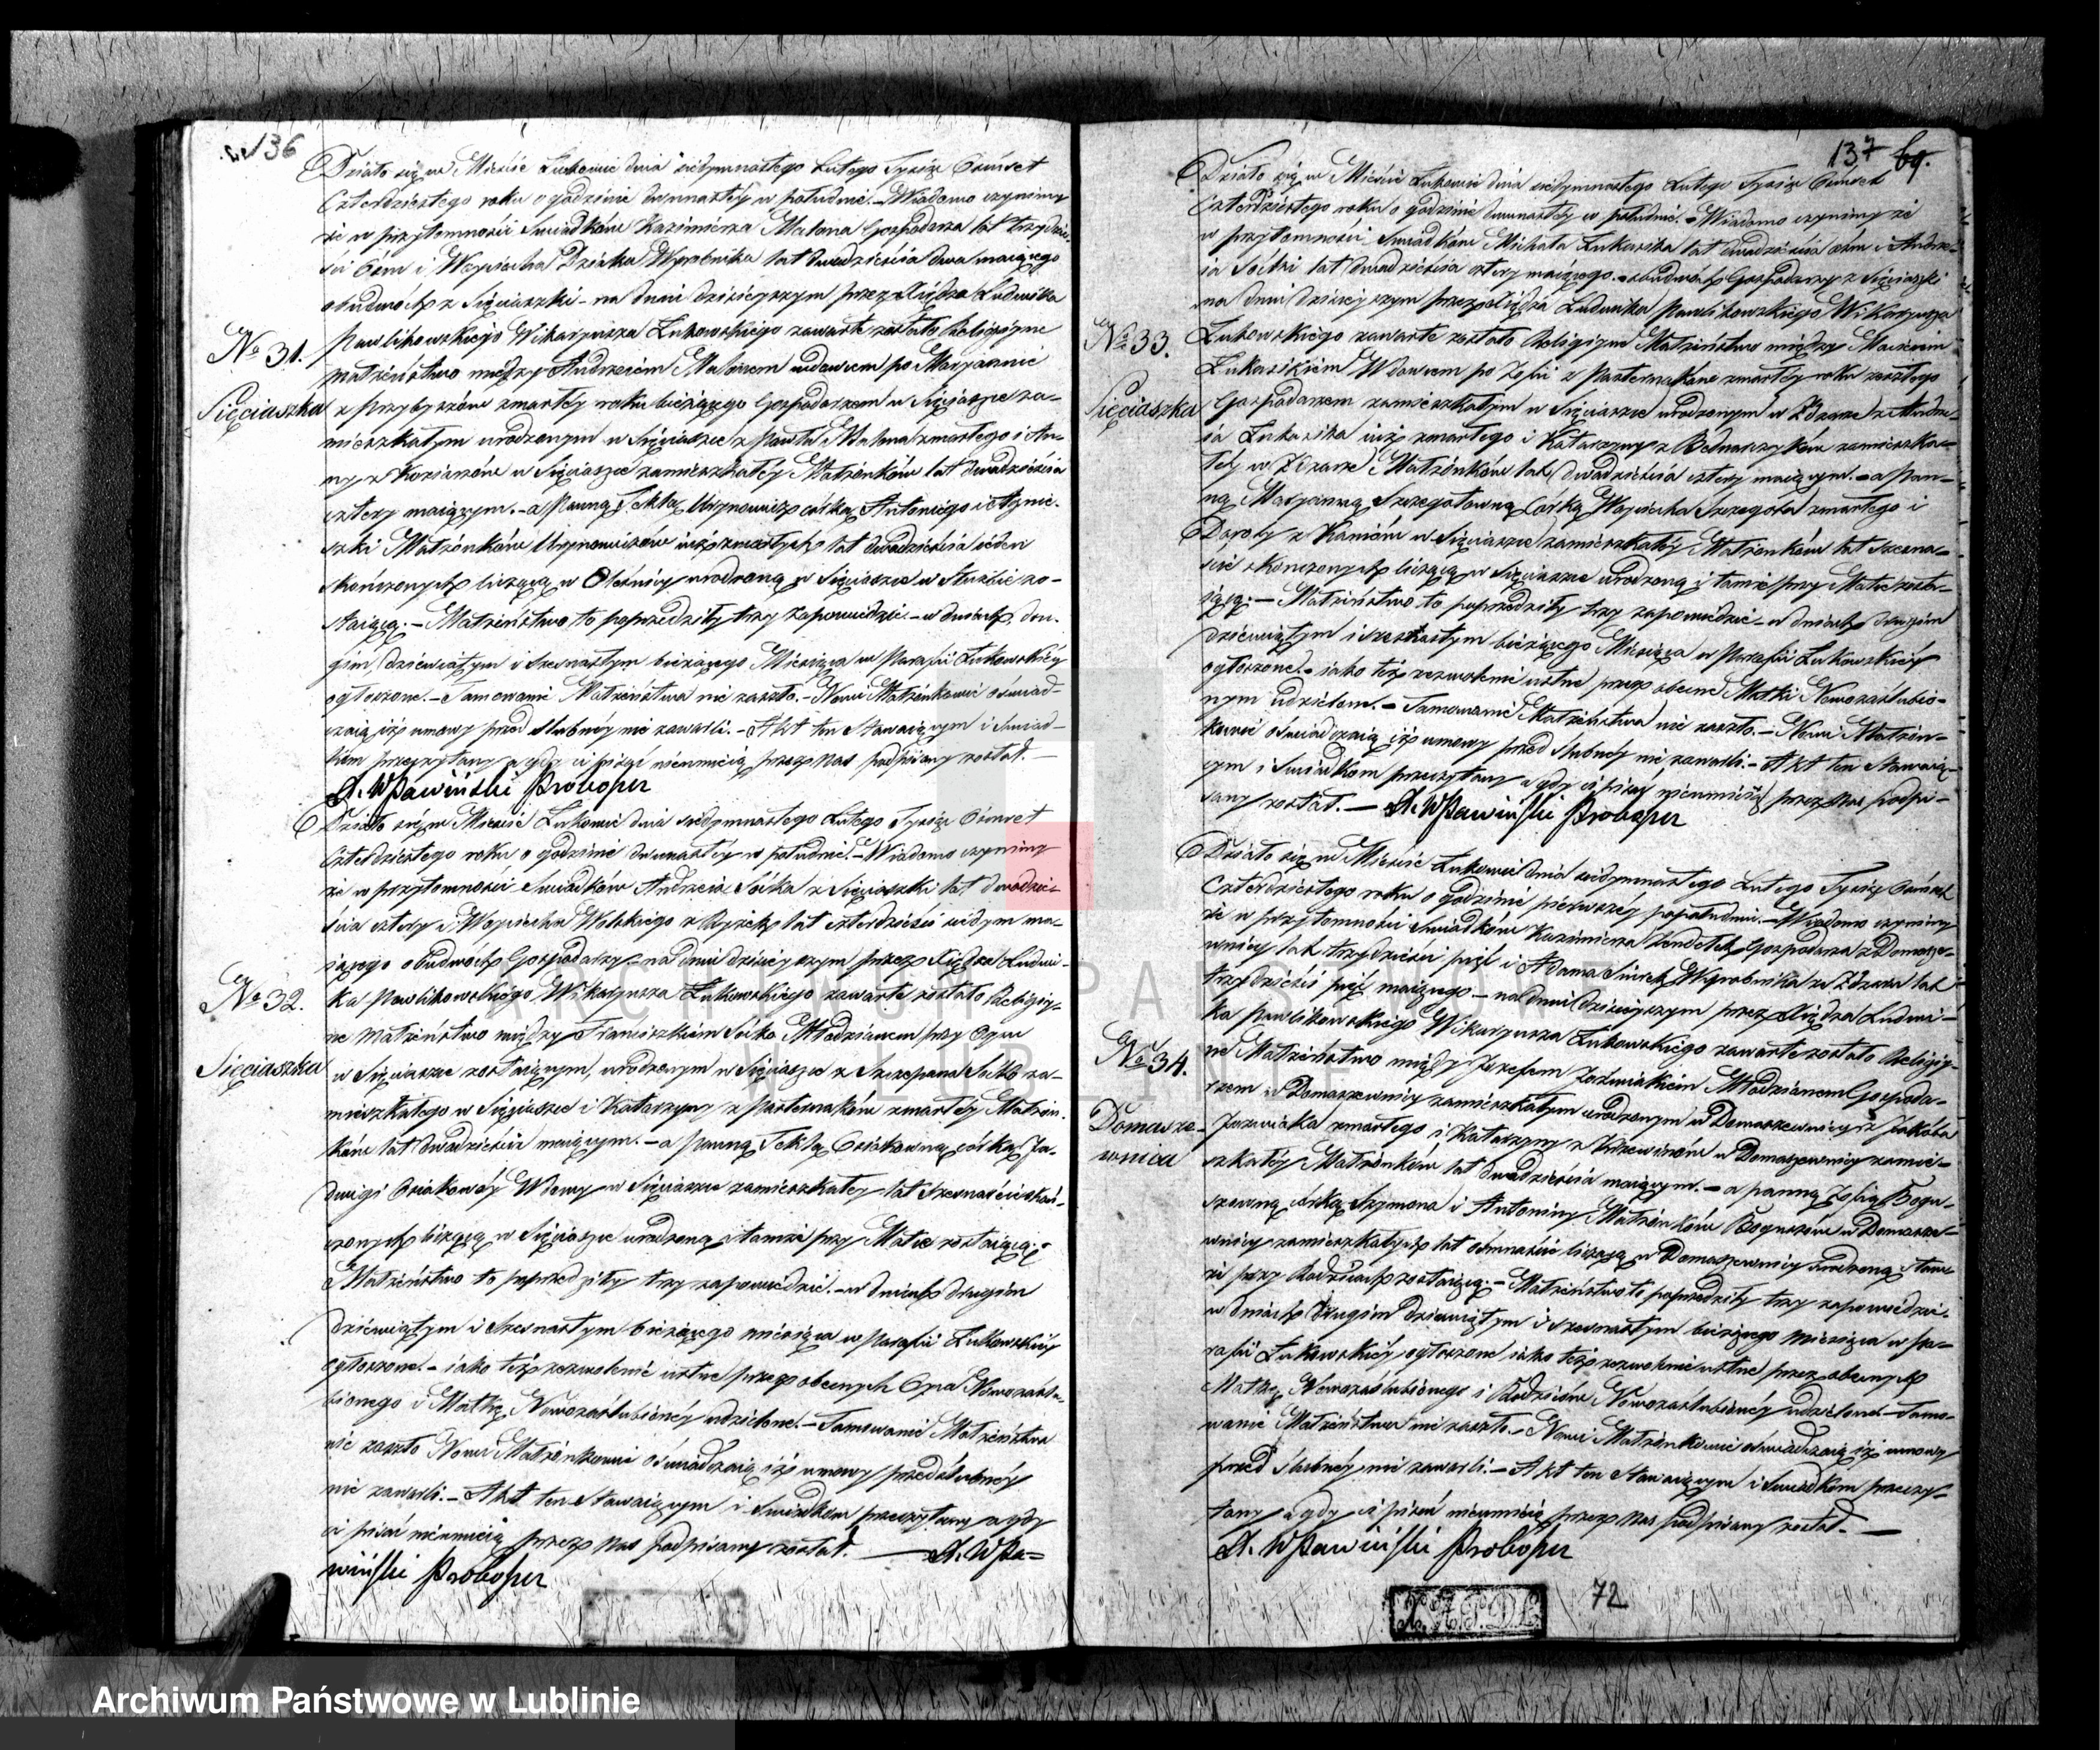 136
Działo się w Mieście Łukowie dnia siedymnastego Lutego Tysiąc Ośmset
Czterdziestego roku o godzinie dwunastéy w południe. – Wiadomo czynimy
że w przytomności Swiadków Kazimierza Matona Gospodarza lat trzydzie-
ści ośm i Woyciecha Dziaka Wyrobnika lat dwadzieścia dwa maiącego
obudwóch z Sięciaszki – na dniu dzisieyszym przez Xiędza Ludwika
Pawlikowskiego Wikaryusza Łukowskiego zawarte zostało Religiyne
N<u>o</u> 31.
Małżeństwo między Andrzeiem Matonem wdowcem po Maryannie
Sięciaszka
z Przybyszów zmarłéy roku bieżącego Gospodarzem w Sięciaszce za-
mieszkałym urodzonym w Sięciaszce z Pawła Matona zmarłego i An-
ny z Koziarzów w Sięciaszce zamieszkałéy Małżonków lat dwadzieścia
cztery maiącym. – a Panną Teklą Urynowicz córką Antoniego i Agnie-
szki Małżonków Urynowiczów iuż zmarłych lat dwadzieścia ieden
skończonych liczącą w Oleśnicy urodzoną w Sięciaszce w Służbie zo-
staiącą. – Małżeństwo to poprzedziły trzy zapowiedzie – w dniach dru-
gim, dziewiątym i szesnastym bieżącego Miesiąca w Parafii Łukowskiéy
ogłoszone. – Tamowanie Małżeństwa nie zaszło. – Nowi Małżonkowie oświad-
czaią iż umowy przed ślubnéy nie zawarli. – Akt ten Stawaiącym i Swiad-
kom przeczytany a gdy ci pisać nieumieią przez Nas podpisany został. –
A. Wpawiński Proboszcz
Działo się w Mieście Łukowie dnia siedymnastego Lutego Tysiąc Ośmset
Czterdziestego roku o godzinie dwunastéy w południe. – Wiadomo czynimy
że w przytomności Swiadków Andrzeia Soćka z Sięciaszki lat dwadzie-
ścia cztery i Woyciecha Wolskiego z Ryżek lat czterdzieści siedym ma-
iącego obudwóch Gospodarzy – na dniu dzisieyszym przez Xiędza Ludwi-
N<u>o</u> 32.
ka Pawlikowskiego Wikaryusza Łukowskiego zawarte zostało Religiy-
ne Małżeństwo między Franciszkiem Soćko Młodzianem przy Oycu
Sięciaszka
w Sięciaszce zostaiącym, urodzonym w Sięciaszce z Szczepana Soćko za-
mieszkałego w Sięciaszce i Katarzyny z Pasternaków zmarłéy Małżon-
ków lat dwadzieścia maiącym. – a Panną Teklą Osiakowną córką Ja-
dwigi Osiakowéy Wdowy w Sięciaszce zamieszkałéy lat szesnaście skoń-
czonych liczącą w Sięciaszce urodzoną i tamże przy Matce zostaiącą. –
Małżeństwo to poprzedziły trzy zapowiedzie. – w dniach drugim
dziewiątym i szesnastym bieżącego miesiąca w Parafii Łukowskiéy
ogłoszone – iako też zezwolenie ustne przez obecnych Oyca Nowozaślu-
bionego i Matkę Nowozaślubionéy udzielone. – Tamowanie Małżeństwa
nie zaszło Nowi Małżonkowie oświadczaią iż umowy przedślubnéy
nie zawarli. – Akt ten Stawaiącym i Swiadkom przeczytany a gdy
ci pisać nieumieią przez Nas podpisany został. – A. Wpa=
wiński Proboszcz
137 69.
Działo się w Mieście Łukowie dnia siedymnastego Lutego Tysiąc Ośmset
Czterdziestego roku o godzinie dwunastéy w południe. – Wiadomo czynimy że
w przytomności Swiadków Michała Łukasika lat dwadzieścia ośm i Andrze-
ia Soćki lat dwadzieścia cztery maiącego. – obudwóch Gospodarzy z Sięciaszki
na dniu dzisieyszym przez Xiędza Ludwika Pawlikowskiego Wikaryusza
N<u>o</u> 33.
Łukowskiego zawarte zostało Religiyne Małżeństwo między Macieiem
Łukasikiem Wdowcem po Zofii z Pasternaków zmarłéy roku zeszłego
Sięciaszka
Gospodarzem zamieszkałym w Sięciaszce urodzonym w Zdżarze z Andrze-
ia Łukasika iuż zmarłego i Katarzyny z Bednarzyków zamieszka-
łéy w Zdżarze Małżonków lat dwadzieścia cztery maiącym. – a Pan-
ną Maryanną Szczegołowną Córką Woyciecha Szczegoła zmarłego i
Doroty z Kaniów w Sięciaszce zamieszkałéy Małżonków lat szesna-
ście skończonych liczącą w Sięciaszce urodzoną i tamże przy Matce zosta-
iącą. – Małżeństwo to poprzedziły trzy zapowiedzie – w dniach drugim
dziewiątym i szesnastym bieżącego Miesiąca w Parafii Łukowskiéy
ogłoszone – iako też zezwolenie ustne przez obecne Matki Nowozaślubio-
nym udzielone. – Tamowanie Małżeństwa nie zaszło. – Nowi Małżon-
kowie oświadczaią iż umowy przed ślubnéy nie zawarli. – Akt ten Stawaią-
cym i Swiadkom przeczytany a gdy ci pisać nieumieią przez Nas podpi-
sany został. – A. Wpawiński Proboszcz
Działo się w Mieście Łukowie dnia siedymnastego Lutego Tysiąc Ośmset
Czterdziestego roku o godzinie pierwszéy popołudniu. – Wiadomo czynimy
że w przytomności Swiadków Kazimierza Gospodarza z Domasze-
wnicy lat trzydzieści pięć i Adama Wyrobnika ze Zdżara lat
trzydzieści pięć maiącego – na dniu dzisieyszym przez Xiędza Ludwi-
ka Pawlikowskiego Wikaryusza Łukowskiego zawarte zostało Religiy-
N<u>o</u> 34.
ne Małżeństwo między Józefem Jóźwiakiem Młodzianem Gospoda-
rzem w Domaszewnicy zamieszkałym urodzonym w Domaszewnicy z Jakóba
Domasze-
wnica
Jóźwiaka zmarłego i Katarzyny z Krzewinów w Domaszewnicy zamie-
szkałéy Małżonków lat dwadzieścia maiącym. – a panną Zofią Bogu-
szowną córką Szymona i Antoniny Małżonków Boguszów w Domasze-
wnicy zamieszkałych lat ośmnaście liczącą w Domaszewnicy urodzoną i tam-
że przy Rodzicach zostaiącą. – Małżeństwo to poprzedziły trzy zapowiedzie.
w dniach drugim dziewiątym i szesnastym bieżącego miesiąca w Pa-
rafii Łukowskiéy ogłoszone iako też zezwolenie ustne przez obecnych
Matkę Nowozaślubionego i Rodziców Nowozaślubionéy udzielone – Tamo-
wanie Małżeństwa nie zaszło. – Nowi Małżonkowie oświadczaią iż umowy
przed ślubnéy nie zawarli. – Akt ten Stawaiącym i Swiadkom przeczy-
tany a gdy ci pisać nieumieią przez Nas podpisany został. –
A. Wpawiński Proboszcz
72
ARCHIWUM PAŃSTWOWE
W LUBLINIE
Archiwum Państwowe w Lublinie